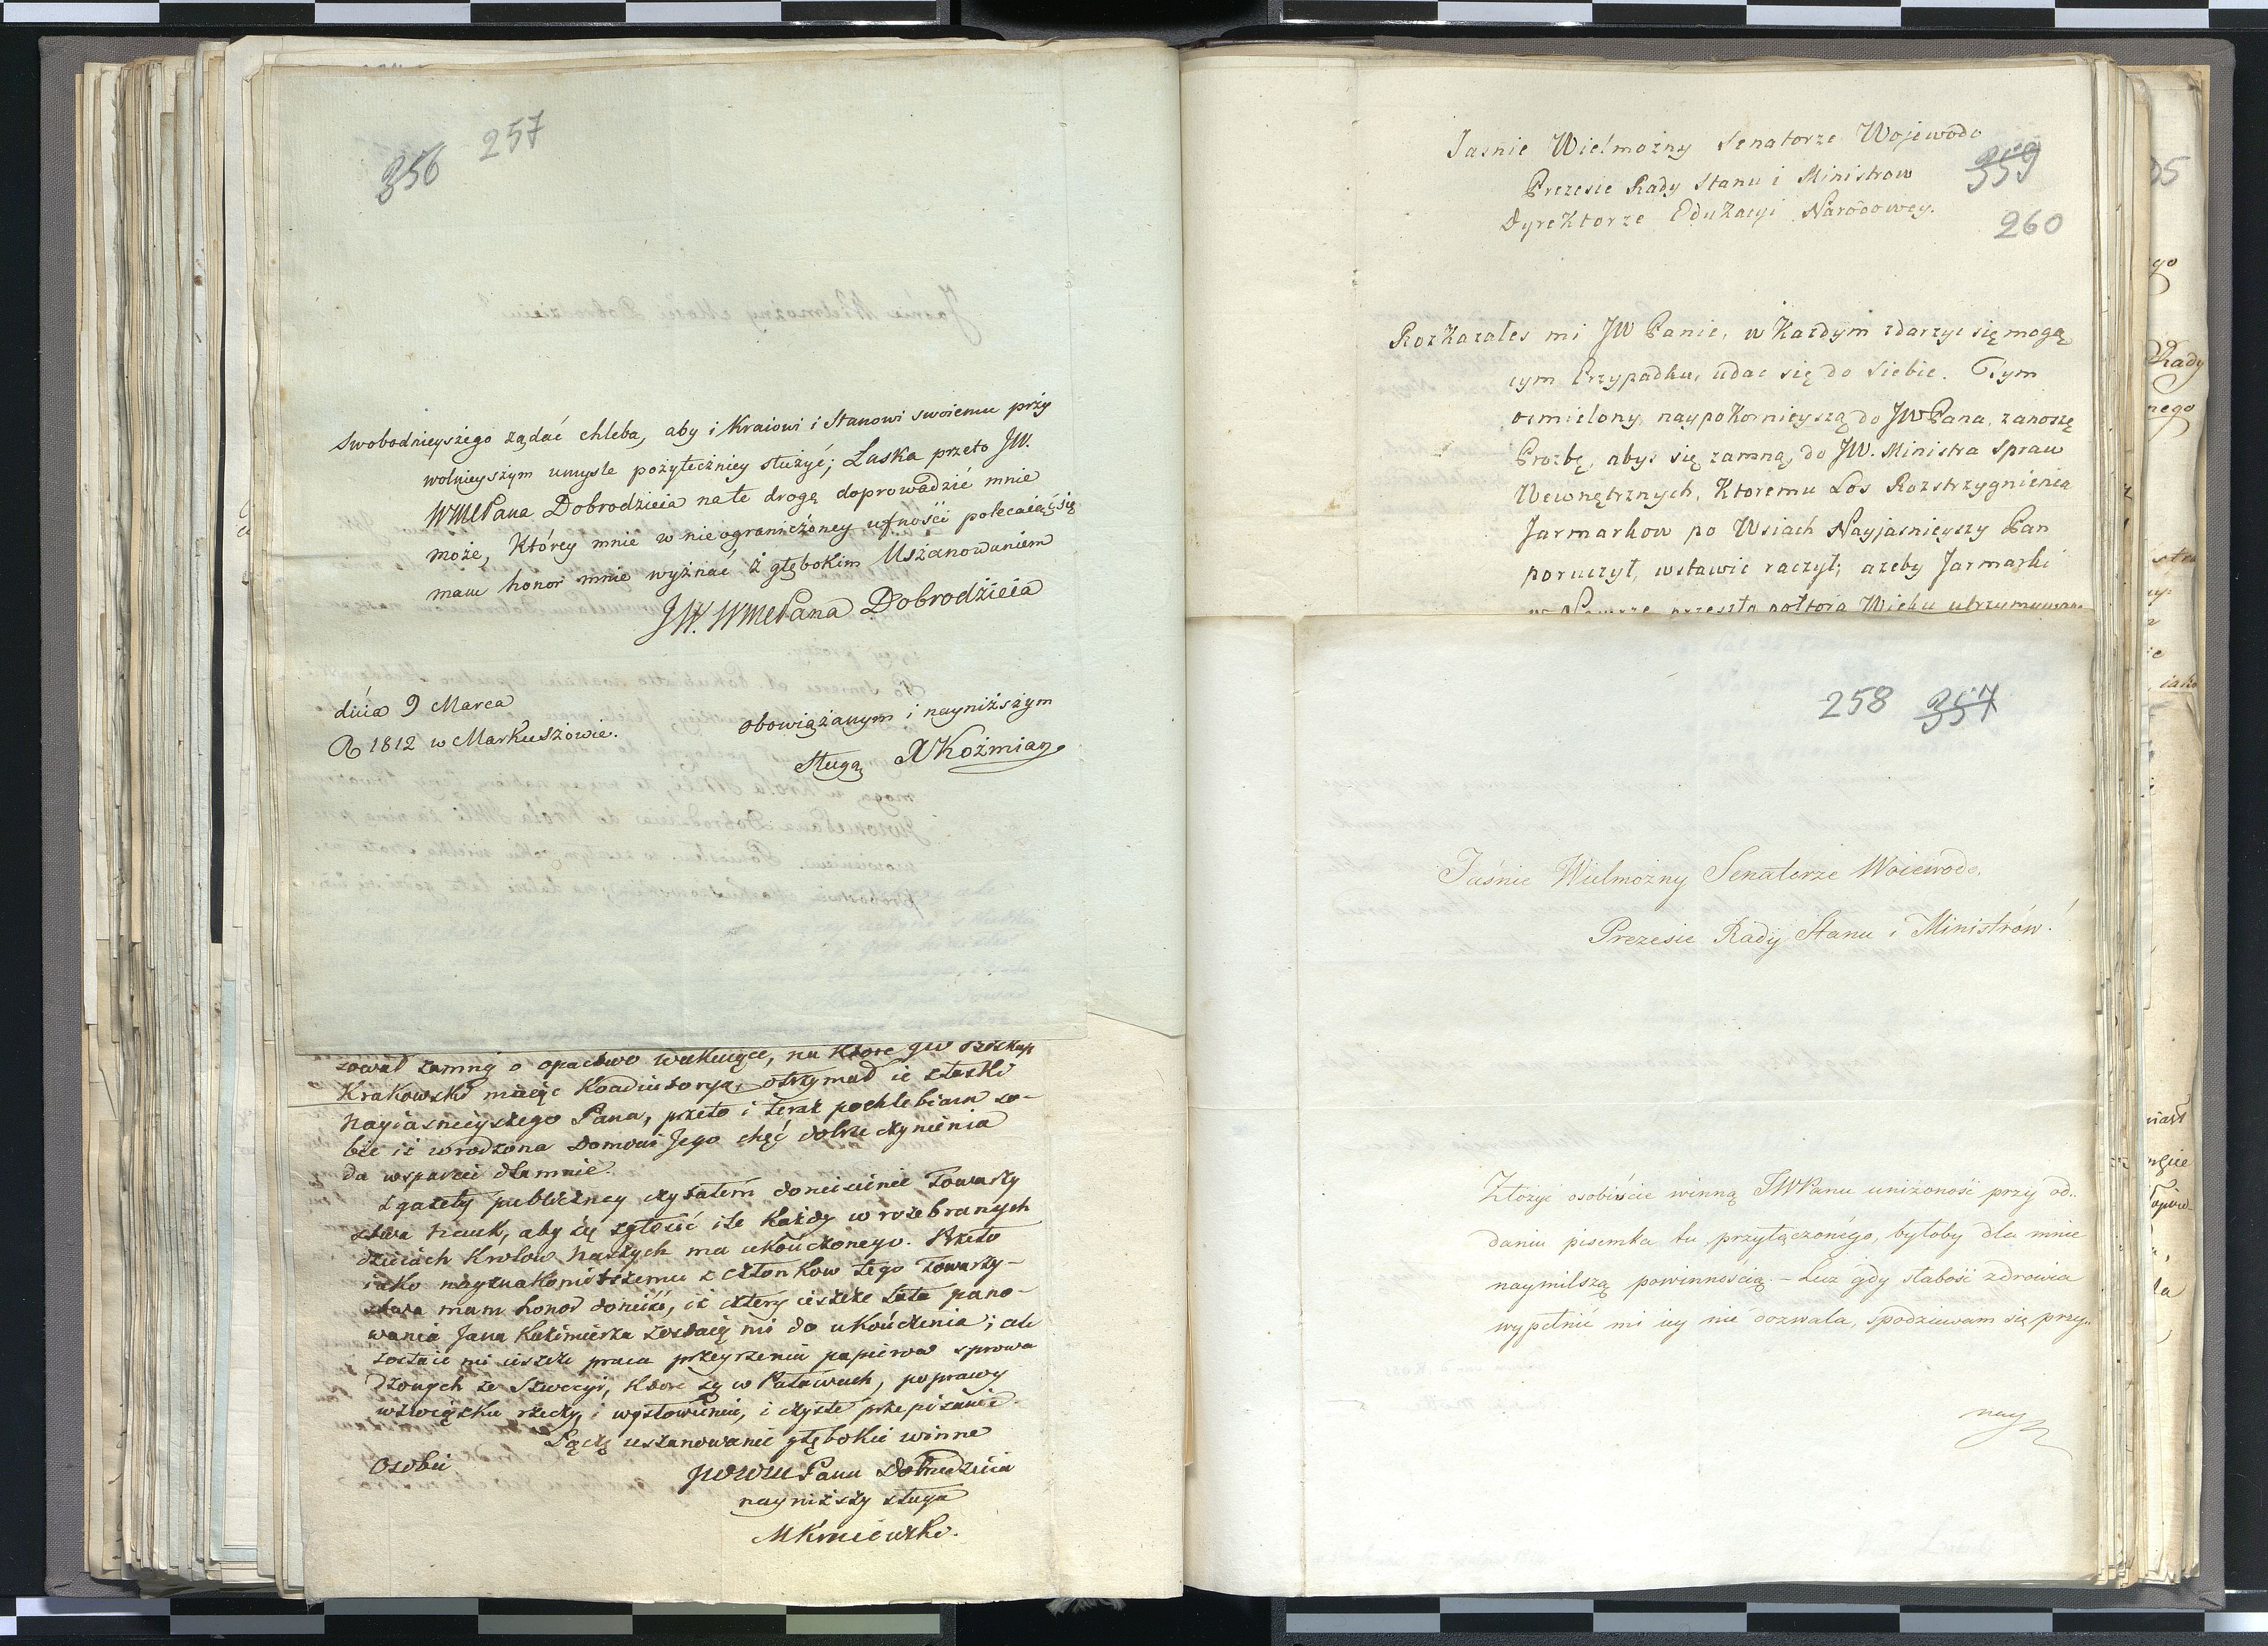 356 257
swobodnieyszego żądać chleba, aby i Kraiowi i Stanowi swoiemu przy
wolnieyszym umyśle pożyteczniey służyć; Łaska przeto JW.
WMPana Dobrodzieia na te drogę doprowadzić mnie
może, Którey mnie w nieograniczóney ufności polecaiąć się
mam honor mnie wyżnać ż głębokim Użanowaniem
JW. WMPana Dobrodzieia
dnia 9 Marca
R 1812 w Markuszowie.
obowiążanym i nayniższym
Sługą XKoźmian
zować zamną o opactwo wakuiące, na które JW Biskup
Krakowski maiąc Koadiutoryą, otrzymał ie z łaski
Nayiaśnieyszego Pana, przeto i teraz pochlebiam so-
bie iż wrodzona Domowi Jego chęć dobrze czynienia
da wsparcie dla mnie.
Z gazety publiczney czytałem doniesienie Towarzy
stwa Nauk, aby się zgłosić ile każdy w rozebranych
dzieiach Królow Naszych ma ukończonego. Przeto
iako nayznakomitszemu z członkow tego Towarzy-
stwa mam honor donieść, iż cztery ieszcze lata pano-
wania Jana Kazimierza zostaią mi do ukończenia; ale
zostaie mi ieszcze praca przeyrzenia papierow sprowa
dzonych ze Szwecyi, które są w Puławach, poprawy
w związku rzeczy, i wysłowieniu, i czyste przepisanie.
Łączę uszanowanie głębokie winne
Osobie
JWWM Pana Dobrodzieia
nayniższy sługa
359
260
Jasnie Wielmożny Senatorze Wojewodo
Prezesie Rady Stanu i Ministrow
Dyrektorze Edukacyi Narodowey.
Rozkazałes mi JW Panie, w Każdym zdarzyc się mogą
cym Przypadku, udac się do Siebie. Tym
osmielony, naypokornieyszą do JWPana, zanoszę
Prozbę, abys się zamną, do JW. Ministra Spraw
Wewnętrznych, Ktoremu Los Rozstrzygnienia
Jarmarkow po Wsiach Nayjasnieyszy Pan
poruczył, wstawic raczył; azeby Jarmarki
przeszło połtora Wieku utrzymywane
258 357
Jaśnie Wielmożny Senatorze Woiewodo,
Prezesie Rady Stanu i Ministrów!
Złożyć osobiście winną JWPanu uniżoność przy od-
daniu pisemka tu przyłączonégo, byłoby dla mnie
naymilszą powinnością. - Lecz gdy słabość zdrowia
wypełnić mi iey nie dozwala, spodziewam się przy-
nay